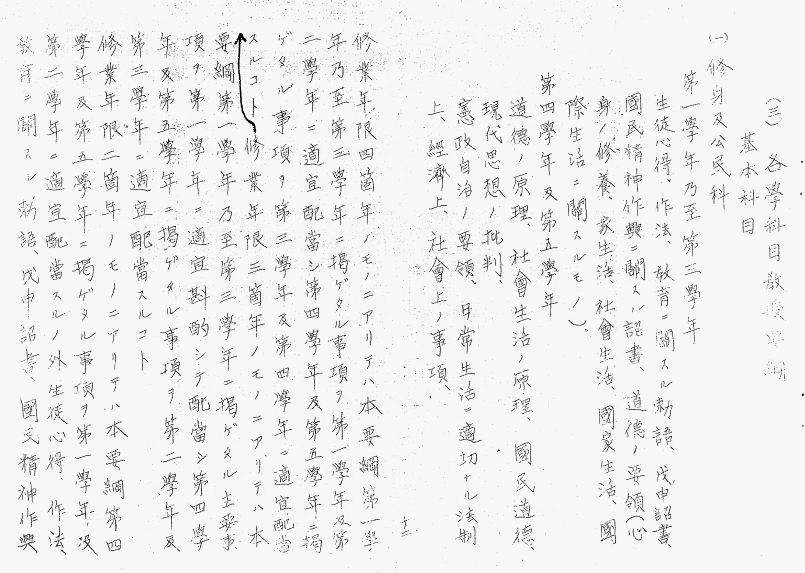 (三) 各學科目教授要綱
基本科目
(一) 修身及公民科
第一學年乃至第三學年
生徒心得、作法、教育ニ關スル勅語、戊申詔書、
國民精神作興ニ關スル詔書、道德ノ要領(心
身ノ修養、家生活、社會生活、國家生活、國
際生活ニ關スルモノ)、
第四學年及第五學年
道德ノ原理、社會生活ノ原理、國民道德、
現代思想ノ批判、
憲政自治ノ要領、日常生活ニ適切ナル法制
上、經濟上、社會上ノ事項、
十二
修業年限四箇年ノモノニアリテハ本要綱第一學
年乃至第三學年ニ揭ゲタル事項ヲ第一學年及第
二學年ニ適宜配當シ第四學年及第五學年ニ揭
ゲタル事項ヲ第三學年及第四學年ニ適宜配當
スルコト修業年限三箇年ノモノニアリテハ本
要綱第一學年乃至第三學年ニ揭ゲタル主要事
項ヲ第一學年ニ適宜斟酌シテ配當シ第四學
年及第五學年ニ揭ゲタル事項ヲ第二學年及
第三學年ニ適宜配當スルコト
修業年限二箇年ノモノニアリテハ本要綱第四
學年及第五學年ニ揭ゲタル事項ヲ第一學年及
第二學年ニ適宜配當スルノ外生徒心得、作法、
教育ニ關スル勅語、戊申詔書、國民精神作興